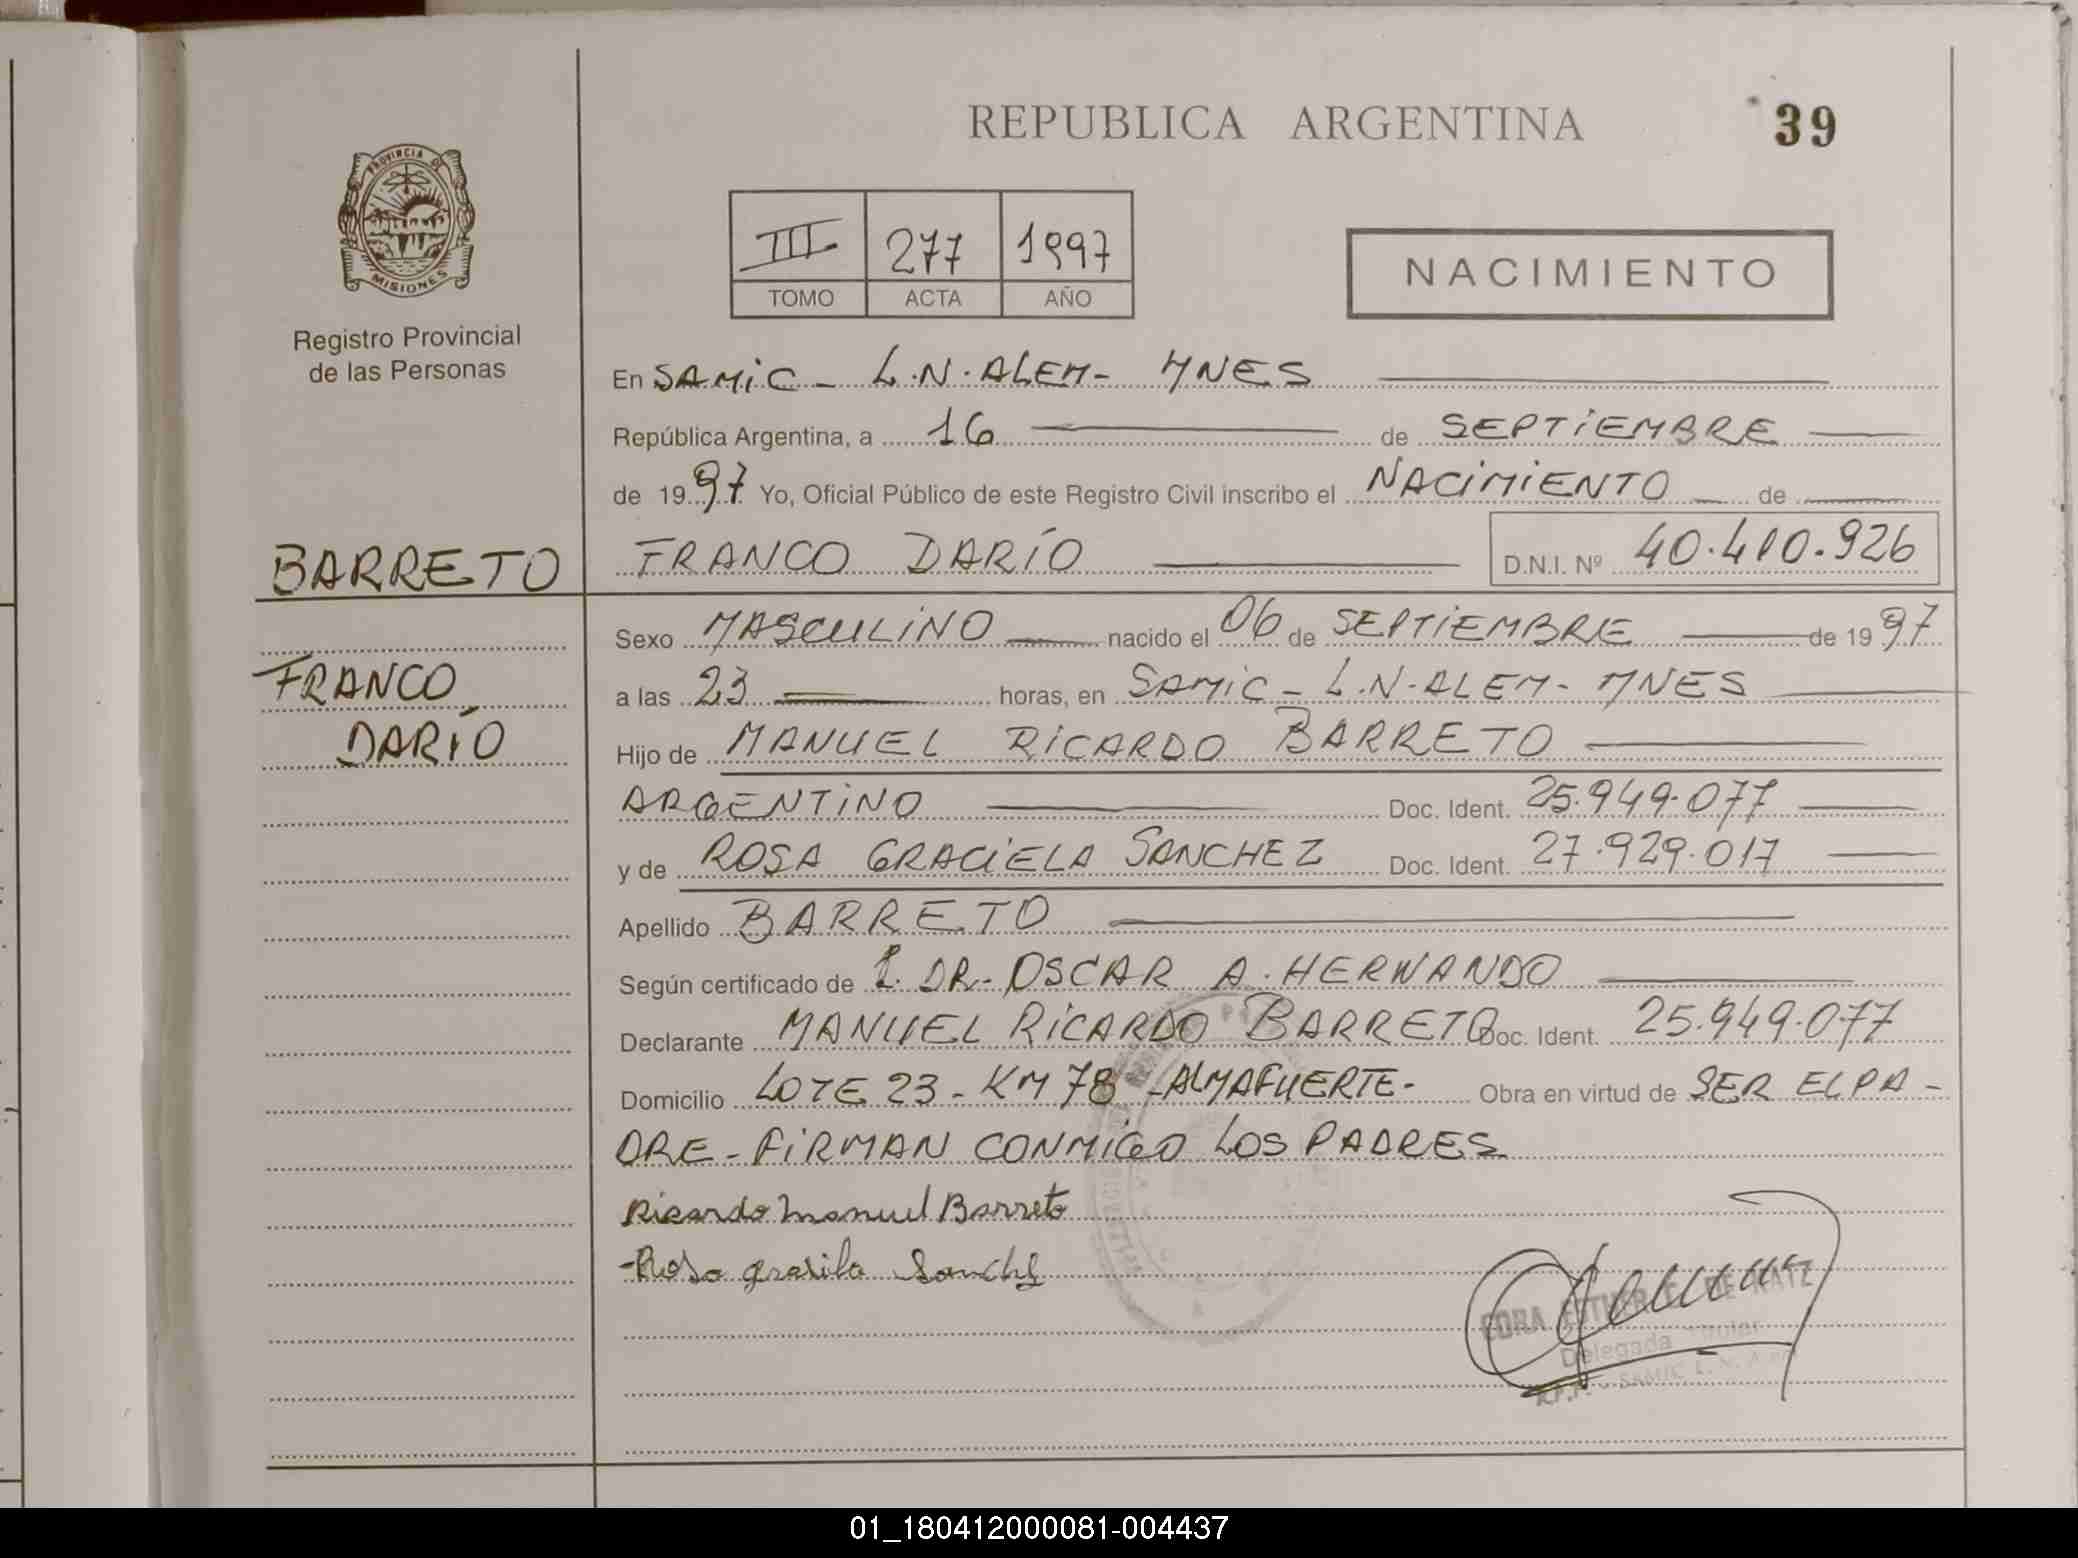 REPUBLICA ARGENTINA
39
PROVINCIA DE
MISIONES
Registro Provincial
de las Personas
III 277 1997
TOMO ACTA AÑO
NACIMIENTO
En SAMIC - L.N.ALEM- MNES
República Argentina, a 16 de SEPTIEMBRE
de 1997 Yo, Oficial Público de este Registro Civil inscribo el NACIMIENTO de
BARRETO
FRANCO DARÍO D.N.I. Nº 40.410.926
FRANCO
DARÍO
Sexo MASCULINO nacido el 06 de SEPTIEMBRE de 1997
a las 23 horas, en SAMIC - L.N-ALEM- MNES
Hijo de MANUEL RICARDO BARRETO
ARGENTINO Doc. Ident. 25.949.077
y de ROSA GRACIELA SANCHEZ Doc. Ident. 27.929.017
Apellido BARRETO
Según certificado de DR- OSCAR A. HERNANDO
Declarante MANUEL RICARDO BARRETO Doc. Ident. 25.949.077
Domicilio LOTE 23 - KM 78 -ALMAFUERTE- Obra en virtud de SER EL PA-
DRE - FIRMAN CONMIGO LOS PADRES
Ricardo Manuel Barreto
-Rosa
ESTHER DE KATZ
Delegada Titular
R.P.P. - SAMIC L.N. Alem
01_180412000081-004437